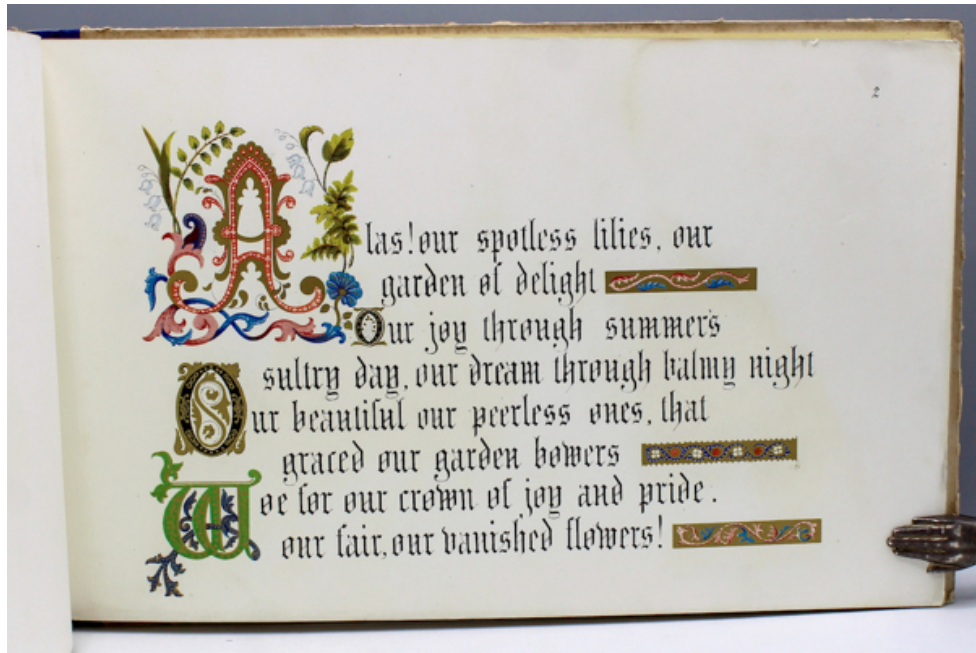 2
Alas! our spotless lilies, our
garden of delight
Our joy through summers
sultry day, our dream through balmy night
Our beautiful our peerless ones, that
graced our garden bowers
Woe for our crown of joy and pride.
our fair, our vanished flowers!